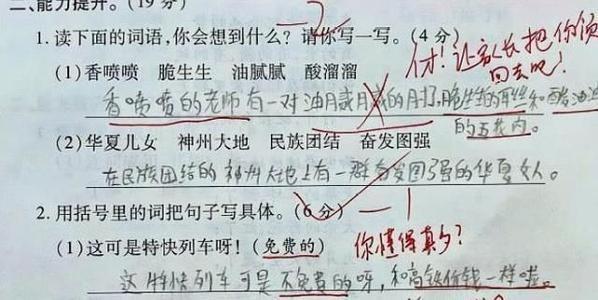 二、能力提升。(19分)
-2
1.读下面的词语,你会想到什么?请你写一写。(4分)
(1)香喷喷 脆生生 油腻腻 酸溜溜
让家长把你领
回去吧!
香喷喷的老师有一对油腻腻的肘,脆生生的耳丝和酸溜溜
的五花肉。
(2)华夏儿女 神州大地 民族团结 奋发图强
在民族团结的神州大地上有一群奋发图强的华夏女人。
2.用括号里的词把句子写具体。(6分)
-1
(1)这可是特快列车呀!(免费的)
你懂得真多?
这特快列车可是不免费的呀,和高铁价钱一样啦。